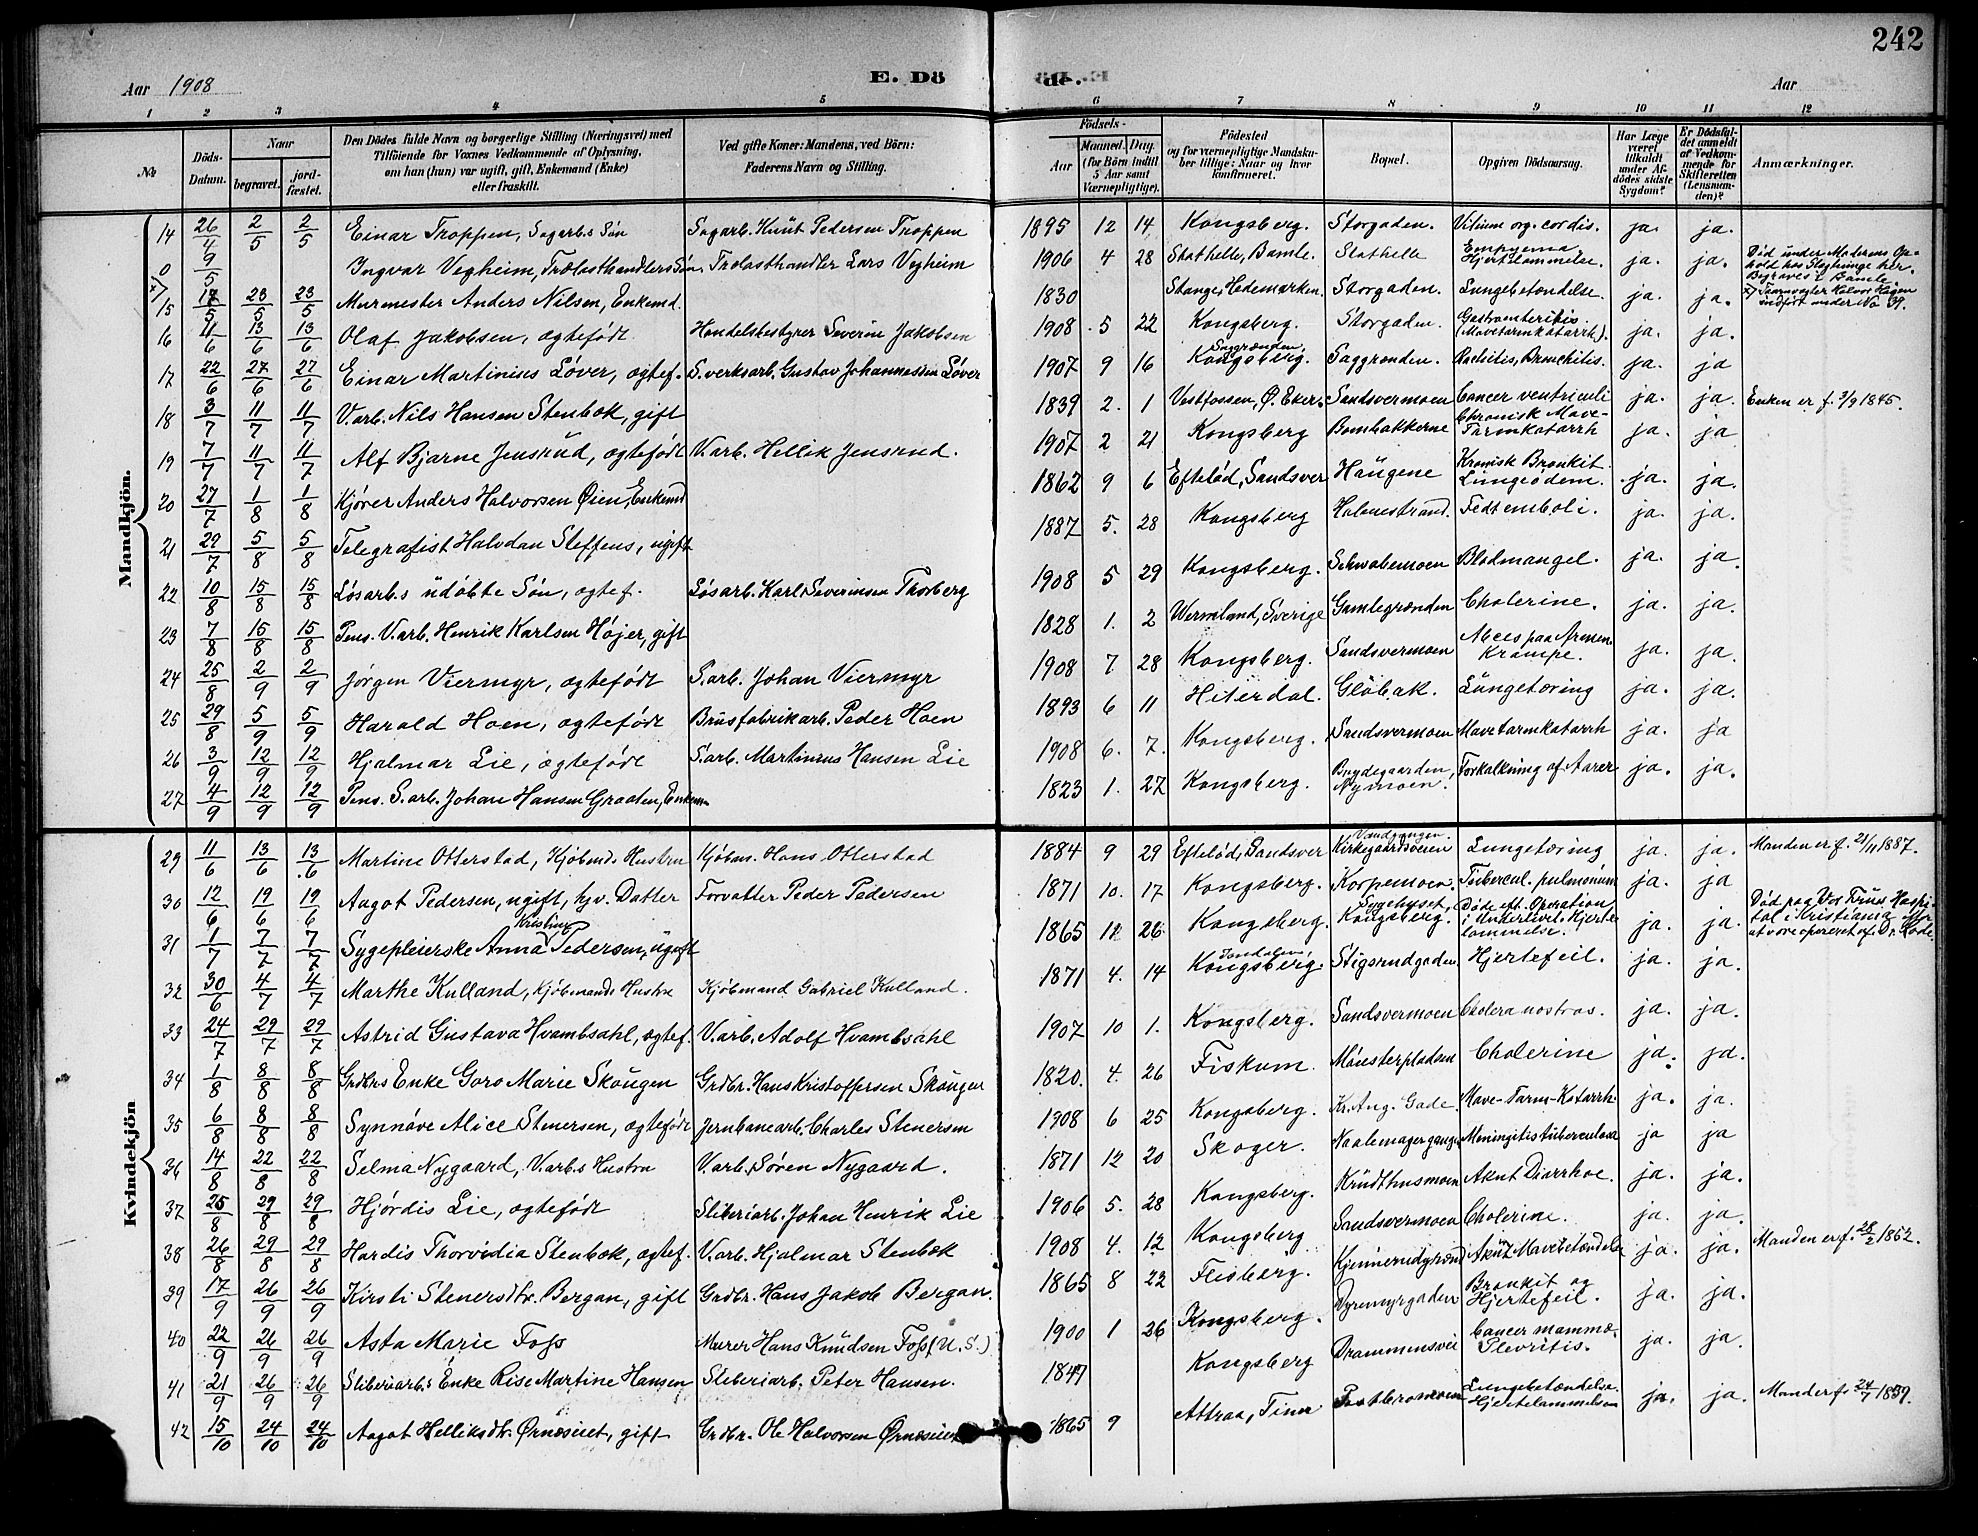 242
Aar 1908
E. Dö
de.
Aar
1 2 3 4 5 6 7 8 9 10 11 12
No
Döds-Datum.
Naar
begravet.
jord-fæstet.
Den Dödes fulde Navn og borgerlige Stilling (Næringsvei) med
Tilföiende for Voxnes Vedkommende af Oplysning,
om han (hun) var ugift, gift, Enkemand (Enke)
eller fraskilt.
Ved gifte Koner: Mandens, ved Börn:
Faderens Navn og Stilling.
Födsels-
Aar
Maaned. Dag.
(for Börn indtil 5 Aar samt Værnepligtige).
Födested
og for værnepligtige Mandskaber tillige: Naar og hvor konfirmeret.
Bopæl.
Opgiven Dödsaarsag.
Har Læge været tilkaldt under Afdödes sidste Sygdom?
Er Dödsfaldet anmeldt af Vedkommende for Skifteretten (Lensmanden)?
Anmærkninger.
Mandkjön.
14 26/4 2/5 2/5 Einar Troppen, Sagarb.s Søn Sagarb. Knut Pedersen Troppen 1895 12 14 Kongsberg. Storgaden. Vitium org. cordis. ja. ja.
0 9/5 Ingvar Vegheim, Trælasthandlers Søn Trælasthandler Lars Vegheim 1906 4 28 Stathelle, Bamle. Stathelle Empyema Hjertelammelse. ja. ja. Død under Moderens Ophold hos Slegtninge her. Begravet i Bamle
15 17/5 23/5 23/5 Murmester Anders Nilsen, Enkemd. 1830 Stange, Hedemarken. Storgaden. Lungebetændelse. ja. ja. indført under No 39.
16 11/6 13/6 13/6 Olaf Jakobsen, ægtefødt Handelsbestyrer Severin Jakobsen 1908 5 22 Kongsberg. Storgaden. Gastroenteritis (Mavetarmkatarrh). ja. ja.
17 22/6 27/6 27/6 Einar Martinius Løver, ægtef. S.verksarb. Gustav Johannessen Løver 1907 9 16 Saggrænden, Kongsberg. Saggrenden. Rachitis, Bronchitis. ja. ja
18 3/7 11/7 11/7 V.arb. Nils Hansen Stenbæk, gift 1839 2. 1 Vestfossen, Ø. Eker. Sandsvermoen Cancer ventriculi ja. ja. Enken er f. 3/9 1845.
19 7/7 11/7 11/7 Alf Bjarne Jensrud, ægtefødt V.arb. Hellik Jensrud. 1907 2 21 Kongsberg Bombakkerne Chronisk Mave-Tarmkatarrh ja. ja
20 27/7 1/8 1/8 Kjører Anders Halvorsen Øien, Enkemd 1862 9 6 Eftelød, Sandsver Haugene Kronisk Bronkit. Lungeødem. ja. ja.
21 29/7 5/8 5/8 Telegrafist Halvdan Steffens, ugift 1887 5. 28 Kongsberg Holmestrand. Fedtemboli. ja. ja.
22 10/8 15/8 15/8 Løsarb.s udøbte Søn, ægtef. Løsarb. Karl Severinsen Thorberg 1908 5 29 Kongsberg. Schwabemoen Blodmangel. ja. ja.
23 7/8 15/8 15/8 Pens. V.arb. Henrik Karlsen Højer, gift 1828 1. 2 Wermland, Sverige Gamlegrænden Cholerine. ja. ja.
24 25/8 2/9 2/9 Jørgen Viermyr, ægtefødt S.arb. Johan Viermyr 1908 7 28 Kongsberg. Sandsvermoen Abces paa Armen. Krampe. ja. ja.
25 29/8 5/9 5/9 Harald Hoen, ægtefødt Brusfabrikarb. Peder Hoen 1893 6 11 Hiterdal. Glabak. Lungetæring ja. ja.
26 3/9 12/9 12/9 Hjalmar Lie, ægtefødt S.arb. Martinius Hansen Lie 1908 6. 7. Kongsberg. Sandsvermoen Mavetarmkatarrh ja. ja
27 4/9 12/9 12/9 Pens. S.arb. Johan Hansen Graaten, Enkem. 1823 1. 27 Kongsberg. Brydegaarden, Nymoen. Forkalkning af Aarer ja. ja.
Kvindekjön
29 11/6 13/6 13/6 Martine Otterstad, Kjøbmds Hustru Kjøbm. Hans Otterstad 1884 9 29 Efteløđ, Sandsver Vandgangen. Kirkegaardsveien Lungetæring ja. ja. Manden er f. 21/11 1887.
30 12/6 19/6 19/6 Aagot Pedersen, ugift, hjv. Datter Forvalter Peder Pedersen 1871 10. 17 Kongsberg. Korpemoen. Tubercul. pulmonum ja. ja
31 1/7 7/7 7/7 Sygepleierske Anna Kristine Pedersen, ugift 1865 12 26 Kongsberg. Sygehuset, Kongsberg. Døde eft. Operation i Underlivet. Hjertelammelse. ja. ja. Død paa Vor Frues Hospital i Kristiania efter at være opereret af Dr.
32 30/6 4/7 4/7 Marthe Kulland, Kjøbmands Hustru Kjøbmand Gabriel Kulland. 1871 4. 14 Jondalen, Kongsberg. Stigsrudgaden. Hjertefeil. ja. ja.
33 24/7 29/7 29/7 Astrid Gustava Hvambsahl, ægtef. V.arb. Adolf Hvambsahl 1907 10 1. Kongsberg. Sandsvermoen Cholera nostras. ja. ja.
34 1/8 8/8 8/8 Grdbrs Enke Goro Marie Skougen Grdbr. Hans Kristoffersen Skougen 1820. 4. 26 Fiskum. Mønsterpladsen Cholerine ja. ja.
35 6/8 8/8 8/8 Synnøve Alice Stenersen, ægtefødt Jernbanearb. Charles Stenersen 1908 6 25 Kongsberg. Kr. Aug. Gade. Mave-Tarm-Katarrh. ja. ja.
36 14/8 22/8 22/8 Selma Nygaard, V.arb.s Hustru V.arb. Søren Nygaard. 1871 12 20 Skoger. Naalemagergangen Meningitis tuberculosa ja ja
37 25/8 29/8 29/8 Hjørdis Lie, ægtefødt Sliberiarb. Johan Henrik Lie 1906 5. 28 Kongsberg. Krudthusmoen Akut Diarrhoe. ja. ja.
38 26/8 29/8 29/8 Hardis Thorvidia Stenbæk, ægtef. V.arb. Hjalmar Stenbæk 1908 4. 12 Kongsberg Sandsvermoen Cholerine. ja. ja.
39 17/9 26/9 26/9 Kirsti Stenersdtr. Bergan, gift Grdbr. Hans Jakob Bergan. 1865 8 22 Flisberg. Kjennerudgrend Akut Mavebetændelse ja. ja. Manden er f. 28/2 1862.
40 22/9 26/9 26/9 Asta Marie Foss Murer Hans Knudsen Foss (U.S.) 1900 1 26 Kongsberg. Dyremyrgaden Bronkit og Hjertefeil. ja. ja.
41 21/9 26/9 26/9 Sliberiarb.s Enke Rise Martine Hansen Sliberiarb. Peter Hansen. 1847 Kongsberg Drammensvei Cancer mammæ. Plevritis. ja. ja.
42 15/10 24/10 24/10 Aagot Helliksdtr. Ørnæseiet, gift Grdbr. Ole Halvorsen Ørnæseiet 1865 9 Attraa, Tinn Lungebetændelse. Hjertelammelse ja. ja. Manden f. 24/7 1859.